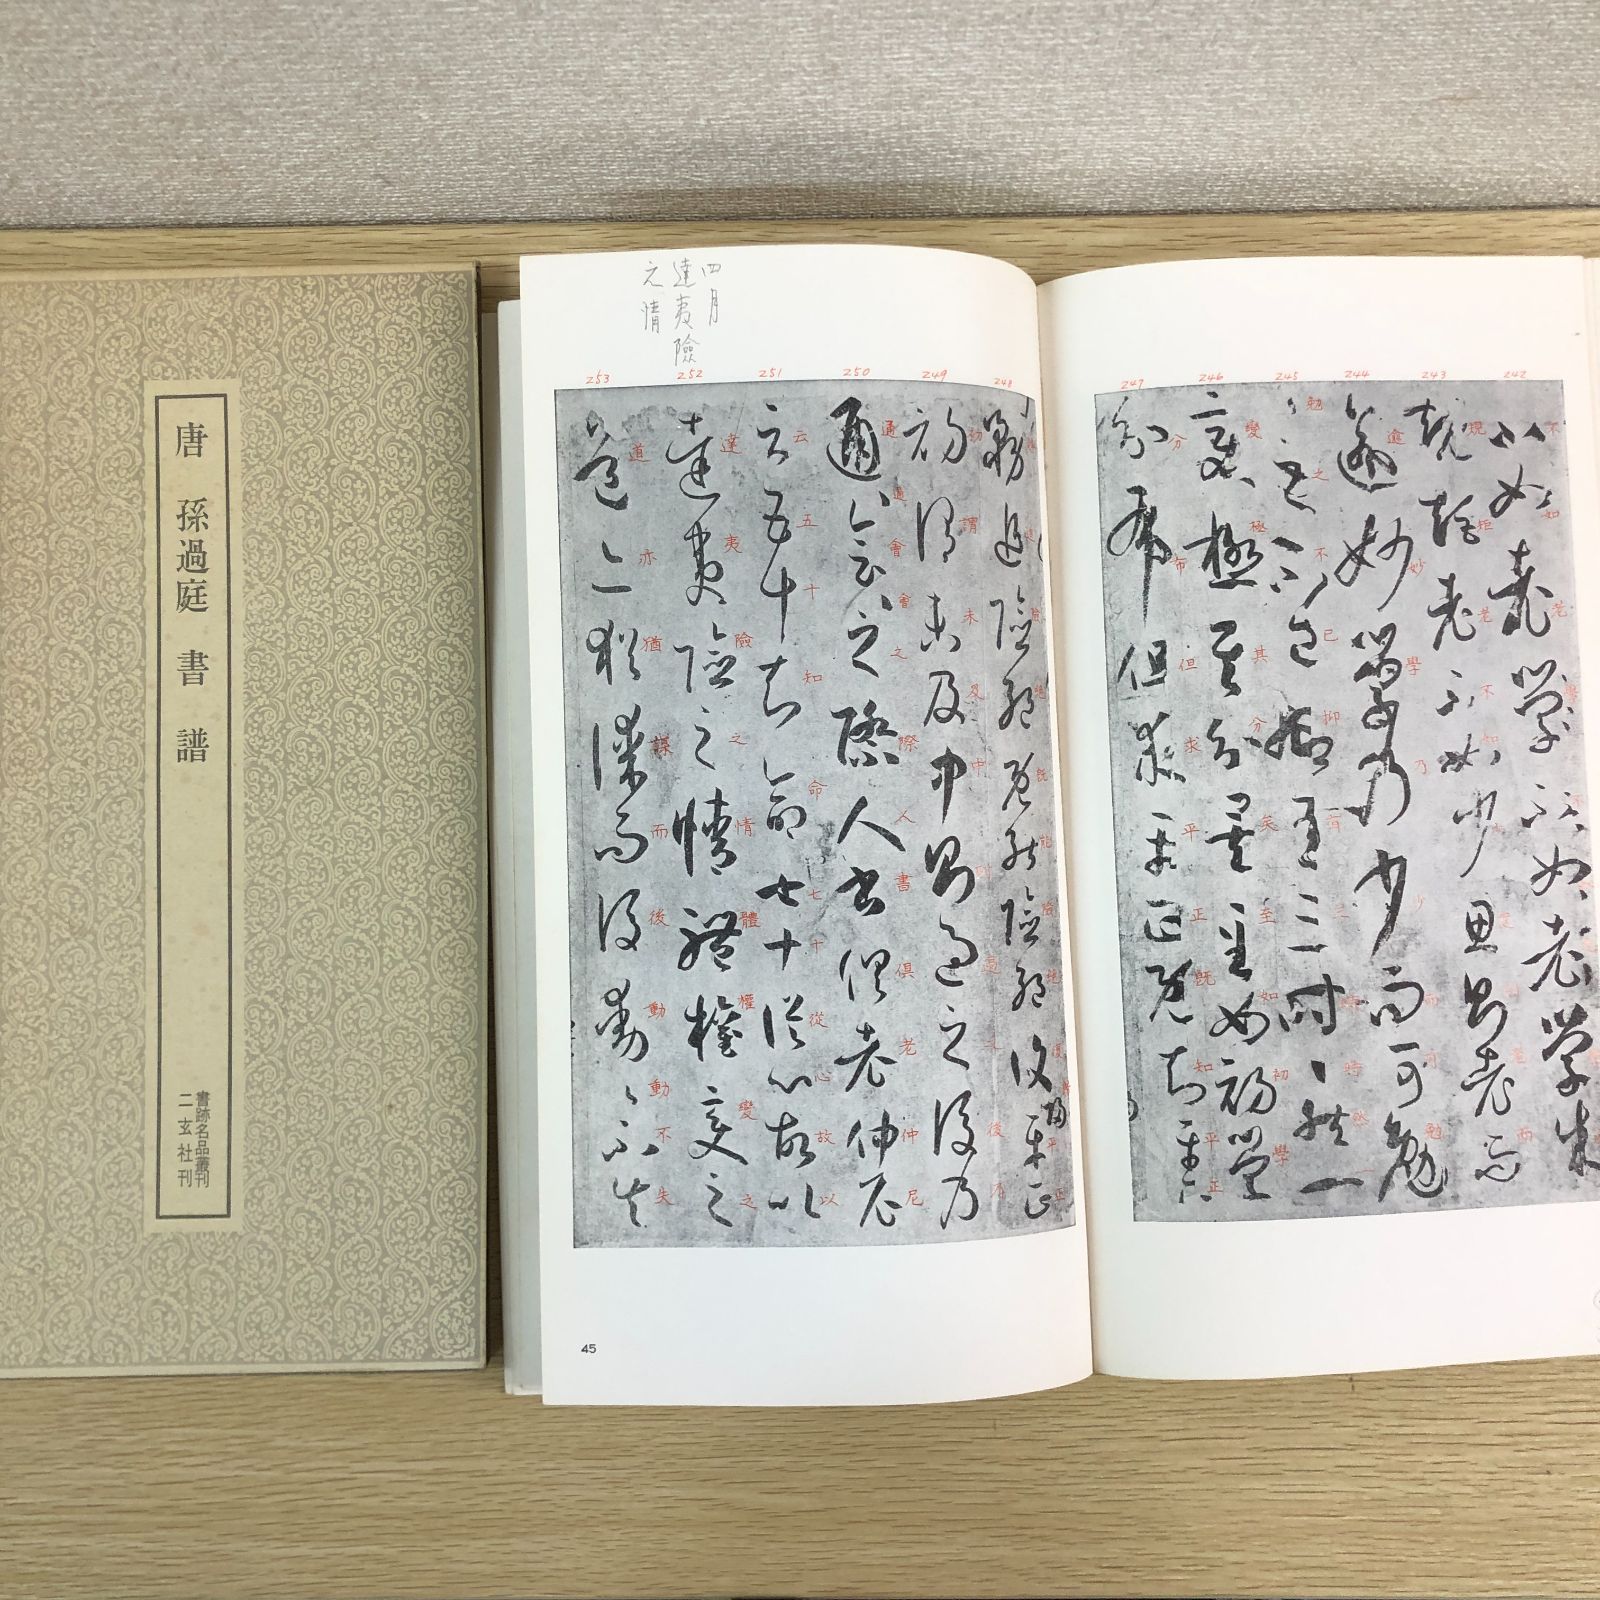 唐 孫過庭 書譜
書跡名品叢刊
二玄社刊
四月
達夷險
之情
242
不如老學不如老學成
243
規矩老不如少思則老而
244
逾妙學乃少而可勉
245
々之不已抑有三時々然一
246
變極其分矣至如初學
247
分布但求平正既知平正
248
務追險絕既能險絕復歸平正
249
初謂未及中則過之後乃
250
通々會々之際人書俱老仲尼
251
云五十知命七十從心故以
252
達夷險之情體權變之
253
道亦猶謀而後動々不失
45